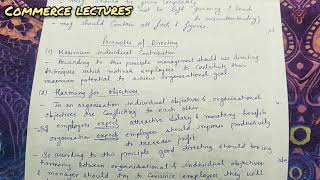 COMMERCE LECTURES
given completely
to left guessing (leads
to misunderstanding)
→ msg should contain all fact & figures
Principles of Directing
(1) Maximum individual Contribution
- According to this principle management should use directing
techniques which motivate employees to contribute their
maximum potential to achieve organisational goal.
(2) Harmony for Objectives
- In an organisation individual objectives & organisational
objectives are conflicting to each other
employees expect attractive salary & monetary benefits
organisation expects employees should improve productivity
to increase profit
- According to this principle good directing should bring
harmony between organisational & individual objectives
& manager should try to convince employees they will